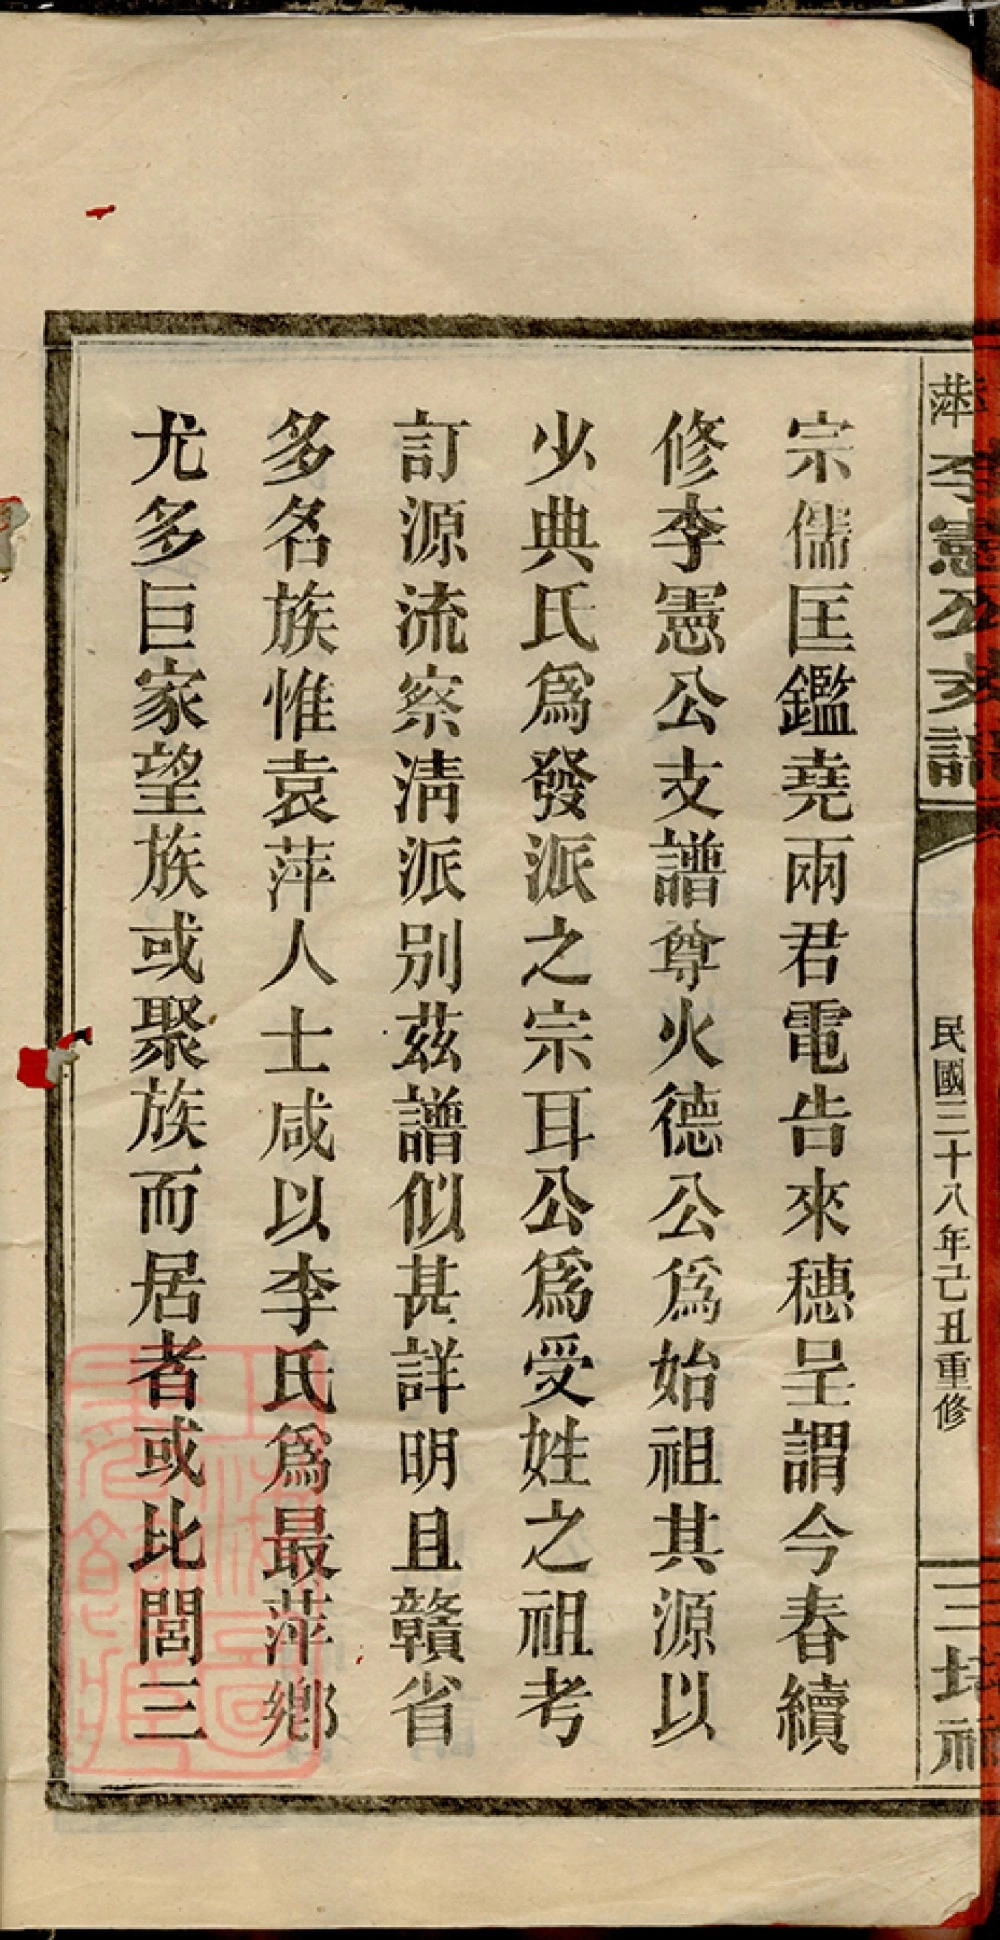 萍李憲公支譜
民國三十八年己丑重修
宗儒匡鑑堯兩君電告來穗呈謂今春續
修李憲公支譜尊火德公爲始祖其源以
少典氏爲發派之宗耳公爲受姓之祖考
訂源流察清派別茲譜似甚詳明且贛省
多名族惟袁萍人士咸以李氏爲最萍鄉
尤多巨家望族或聚族而居者或比閭三